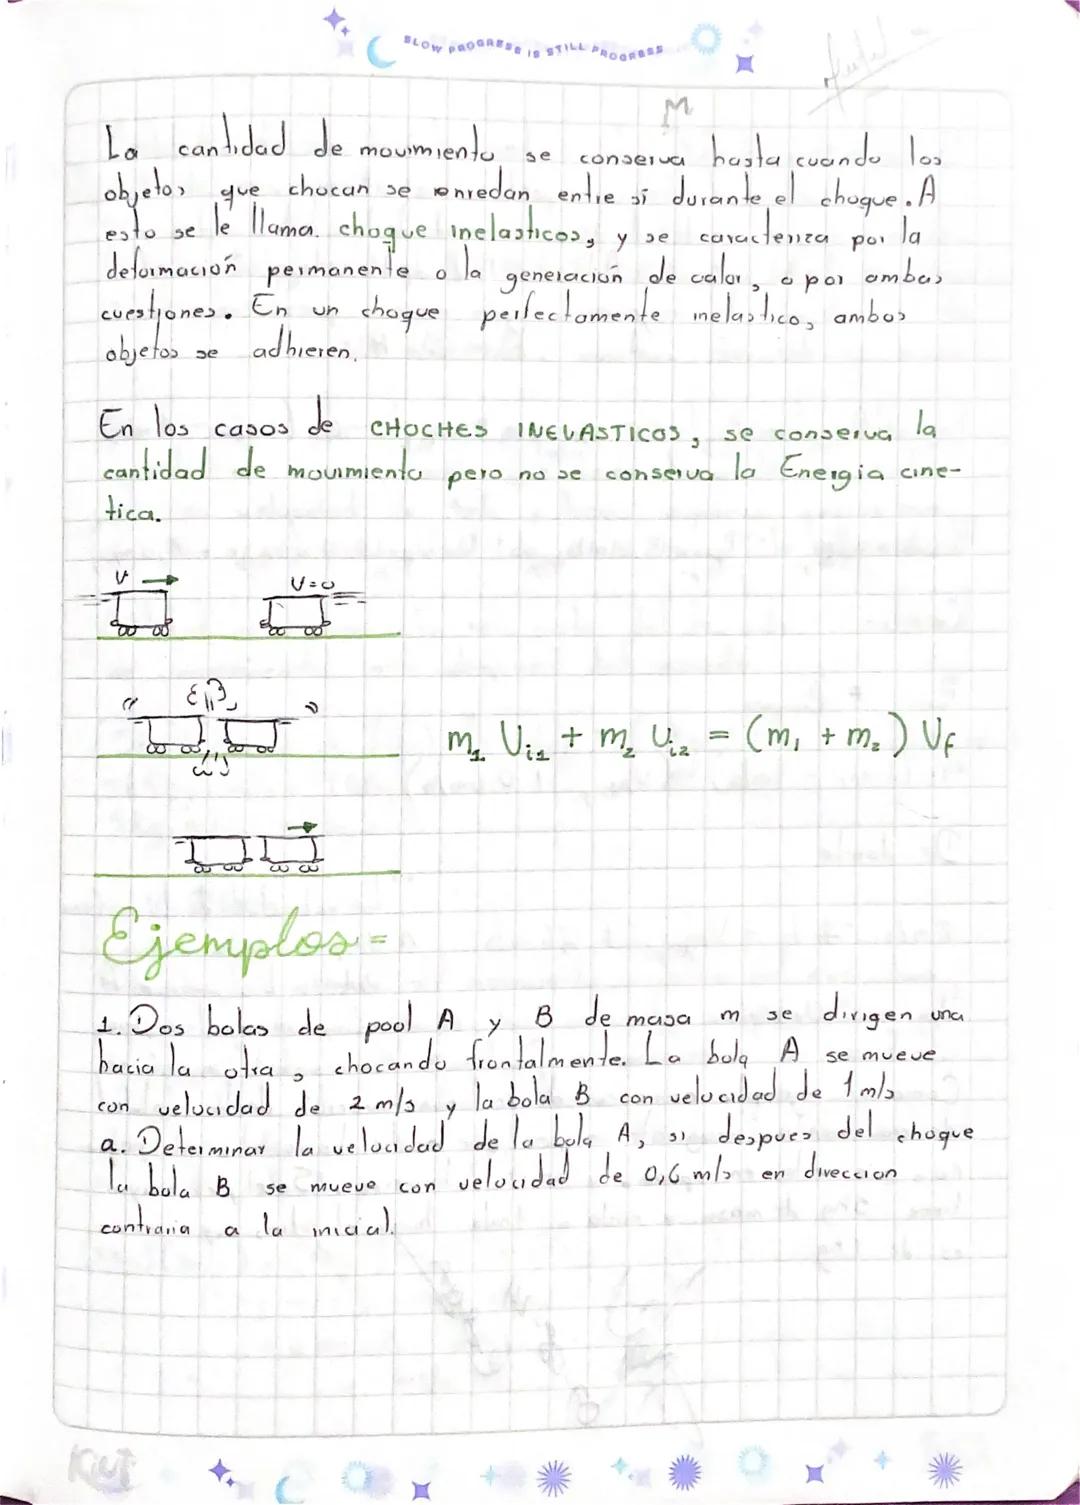 SLOW PROGRESS IS STILL PROGRESS
M
La cantidad de movimiento se conserva hasta cuando los
objetos que chocan se enredan entre sí durante el choque. A
esto se le llama. choque inelasticos, y se caracteriza por la
deformación permanente o la generación de calor, o por ambas
cuestiones. En un choque perfectamente inelastico, ambos
objetos se adhieren.
En los casos de CHOCHES INELASTICOS, se conserva la
cantidad de movimiento pero no se conserva la Energia cine-
tica.
V V=0
m₁ Ui₁ + m₂ Ui₂ = (m₁ + m₂) Vf
Ejemplos=
1. Dos bolas de pool A y B de masa m se dirigen una
hacia la otra, chocando frontalmente. La bola A se mueve
con velocidad de 2 m/s y la bola B con velocidad de 1 m/s
a. Determinar la velocidad de la bola A, si despues del choque
la bola B se mueve con velocidad de 0,6 m/s en direccion
contraria a la inicial.